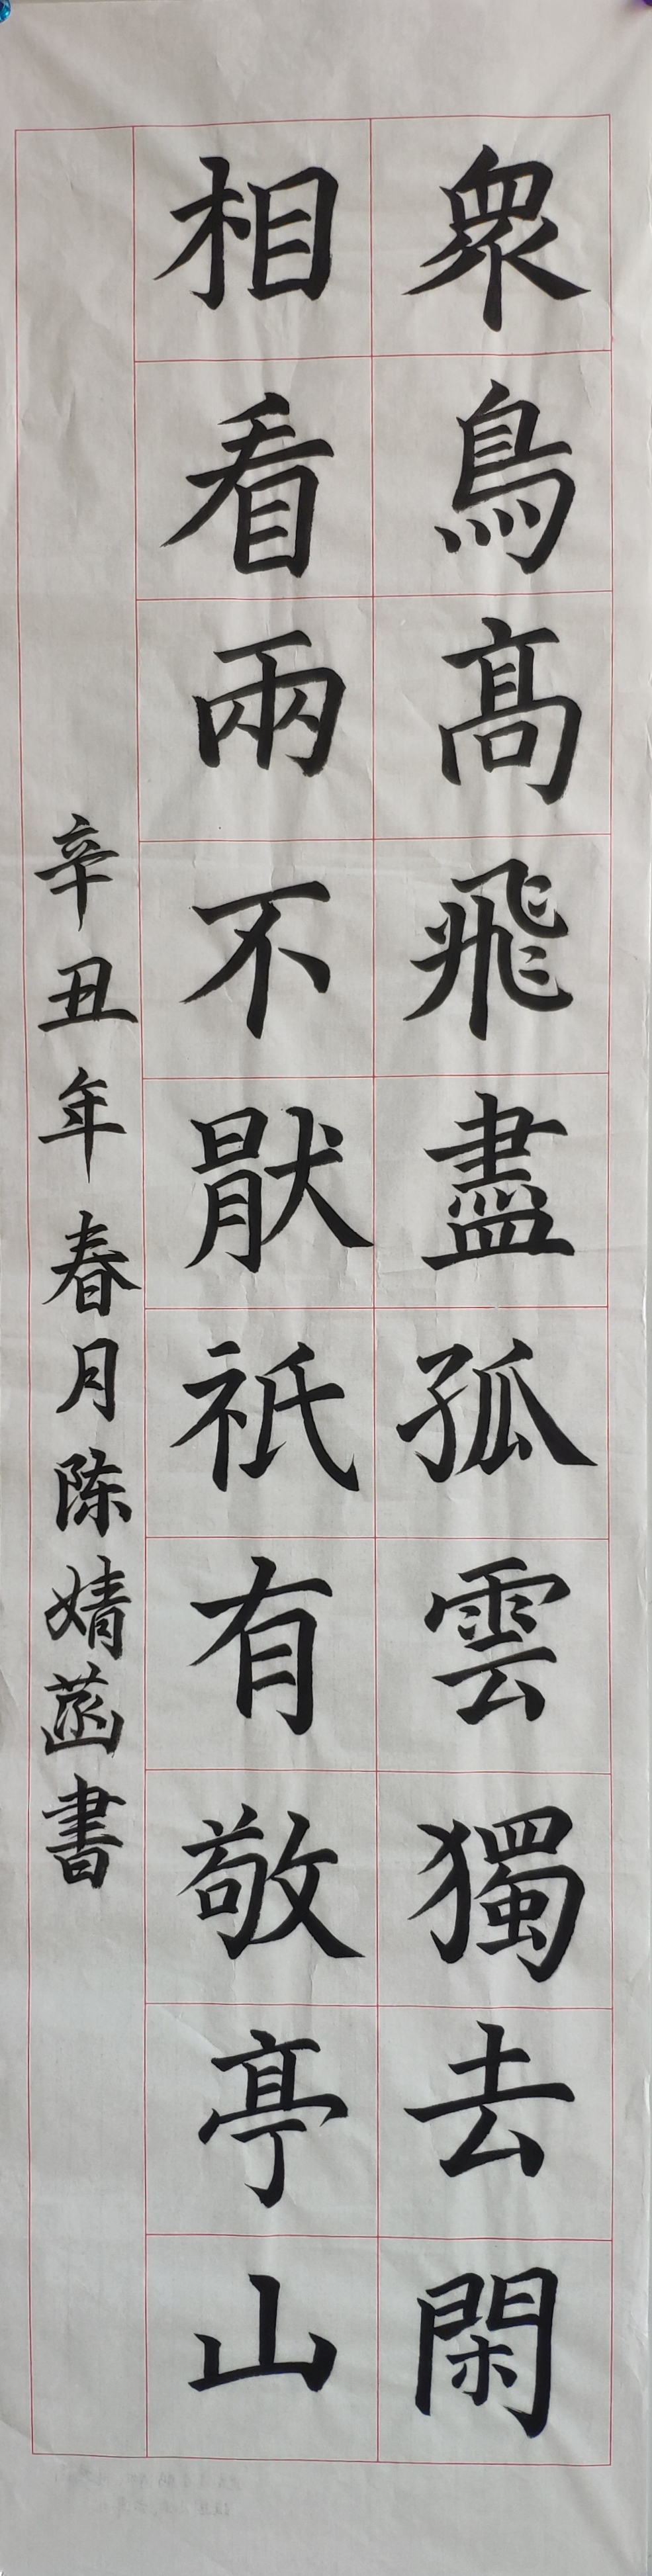 衆鳥髙飛盡孤雲獨去閑
相看兩不猒祇有敬亭山
辛丑年春月陈婧菡書